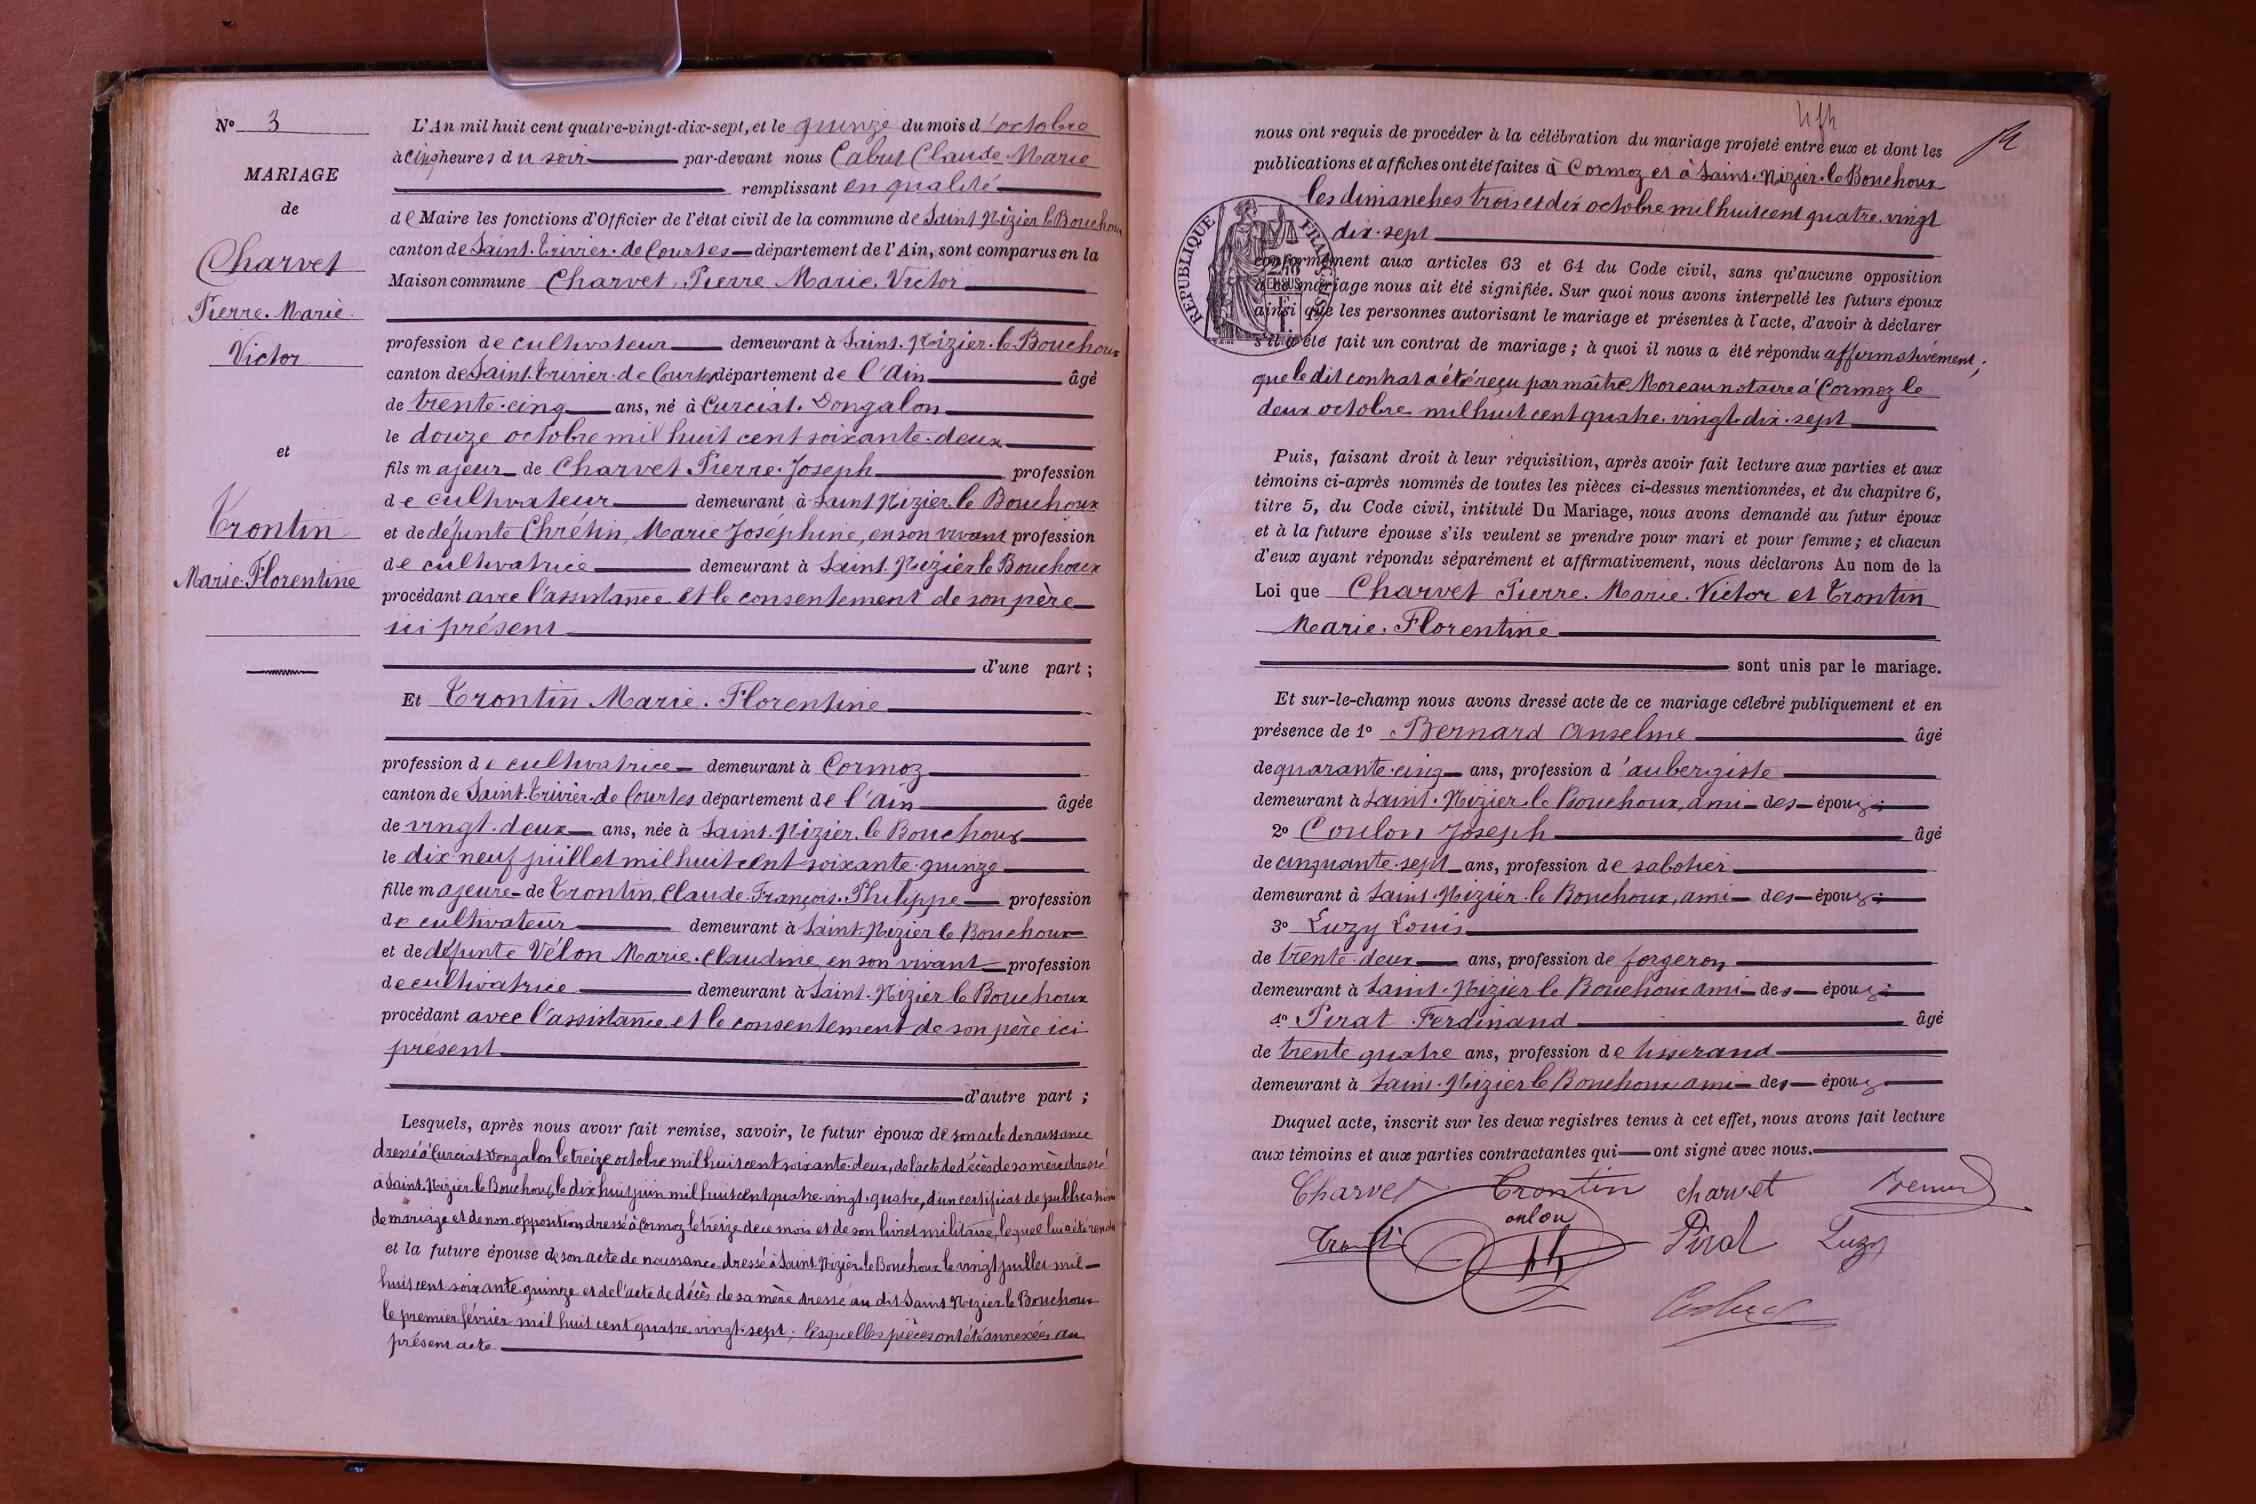 N° 3
MARIAGE
de
Charvet
Pierre. Marie.
Victor
et
Trontin
Marie. Florentine
L'An mil huit cent quatre-vingt-dix-sept, et le quinze du mois d'octobre
à cinq heures du soir par-devant nous Cabut Claude. Marie
remplissant en qualité
de Maire les fonctions d'Officier de l'état civil de la commune de Saint Nizier le Bouchoux
canton de Saint. Trivier. de Courtes département de l'Ain, sont comparus en la
Maison commune Charvet Pierre Marie. Victor
profession de cultivateur demeurant à Saint. Nizier. le Bouchoux
canton de Saint. Trivier. de Courtes département de l'Ain âgé
de trente. cinq ans, né à Curciat. Dongalon
le douze octobre mil huit cent soixante. deux
fils majeur de Charvet Pierre. Joseph profession
de cultivateur demeurant à Saint Nizier le Bouchoux
et de défunte Chrétin, Marie Joséphine, en son vivant profession
de cultivatrice demeurant à Saint. Nizier le Bouchoux
procédant avec l'assistance et le consentement de son père
ici présent
d'une part ;
Et Trontin Marie. Florentine
profession de cultivatrice demeurant à Cormoz
canton de Saint. Trivier. de Courtes département de l'Ain âgée
de vingt. deux ans, née à Saint. Nizier. le Bouchoux
le dix neuf juillet mil huit cent soixante. quinze
fille majeure de Trontin, Claude. François. Philippe profession
de cultivateur demeurant à Saint. Nizier le Bouchoux
et de défunte Vélon Marie. Claudine, en son vivant profession
de cultivatrice demeurant à Saint. Nizier le Bouchoux
procédant avec l'assistance et le consentement de son père ici
présent
d'autre part ;
Lesquels, après nous avoir fait remise, savoir, le futur époux de son acte de naissance
dressé à Curciat Dongalon le treize octobre mil huit cent soixante. deux, de l'acte de décès de sa mère dressé
à Saint. Nizier le Bouchoux le dix huit juin mil huit cent quatre. vingt. quatre, d'un certificat de publication
de mariage et de non. opposition dressé à Cormoz le treize de ce mois et de son livret militaire, lequel lui a été rendu
et la future épouse de son acte de naissance dressé à Saint Nizier le Bouchoux le vingt juillet mil
huit cent soixante quinze et de l'acte de décès de sa mère dressé au dit Saint Nizier le Bouchoux
le premier février mil huit cent quatre. vingt. sept ; lesquelles pièces ont été annexées au
présent acte
nous ont requis de procéder à la célébration du mariage projeté entre eux et dont les
publications et affiches ont été faites à Cormoz et à Saint. Nizier. le Bouchoux
les dimanches trois et dix octobre mil huit cent quatre. vingt
dix. sept
REPUBLIQUE FRANÇAISE
conformément aux articles 63 et 64 du Code civil, sans qu'aucune opposition
à ce mariage nous ait été signifiée. Sur quoi nous avons interpellé les futurs époux
ainsi que les personnes autorisant le mariage et présentes à l'acte, d'avoir à déclarer
s'il a été fait un contrat de mariage ; à quoi il nous a été répondu affirmativement ;
que le dit contrat a été reçu par maître Moreau notaire à Cormoz le
deux octobre mil huit cent quatre. vingt. dix. sept
Puis, faisant droit à leur réquisition, après avoir fait lecture aux parties et aux
témoins ci-après nommés de toutes les pièces ci-dessus mentionnées, et du chapitre 6,
titre 5, du Code civil, intitulé Du Mariage, nous avons demandé au futur époux
et à la future épouse s'ils veulent se prendre pour mari et pour femme ; et chacun
d'eux ayant répondu séparément et affirmativement, nous déclarons Au nom de la
Loi que Charvet Pierre. Marie. Victor et Trontin
Marie. Florentine
sont unis par le mariage.
Et sur-le-champ nous avons dressé acte de ce mariage célébré publiquement et en
présence de 1° Bernard Anselme âgé
de quarante. cinq ans, profession d'aubergiste
demeurant à Saint. Nizier. le Bouchoux, ami des époux ;
2° Coulon Joseph âgé
de cinquante. sept ans, profession de sabotier
demeurant à Saint. Nizier. le Bouchoux, ami des époux ;
3° Luzy Louis
de trente. deux ans, profession de forgeron
demeurant à Saint. Nizier le Bouchoux ami des époux ;
4° Pirat Ferdinand âgé
de trente quatre ans, profession de tisserand
demeurant à Saint. Nizier le Bouchoux ami des époux
Duquel acte, inscrit sur les deux registres tenus à cet effet, nous avons fait lecture
aux témoins et aux parties contractantes qui ont signé avec nous.
Charvet Trontin charvet Bernard
Trontin Coulon Pirat Luzy
Cabut